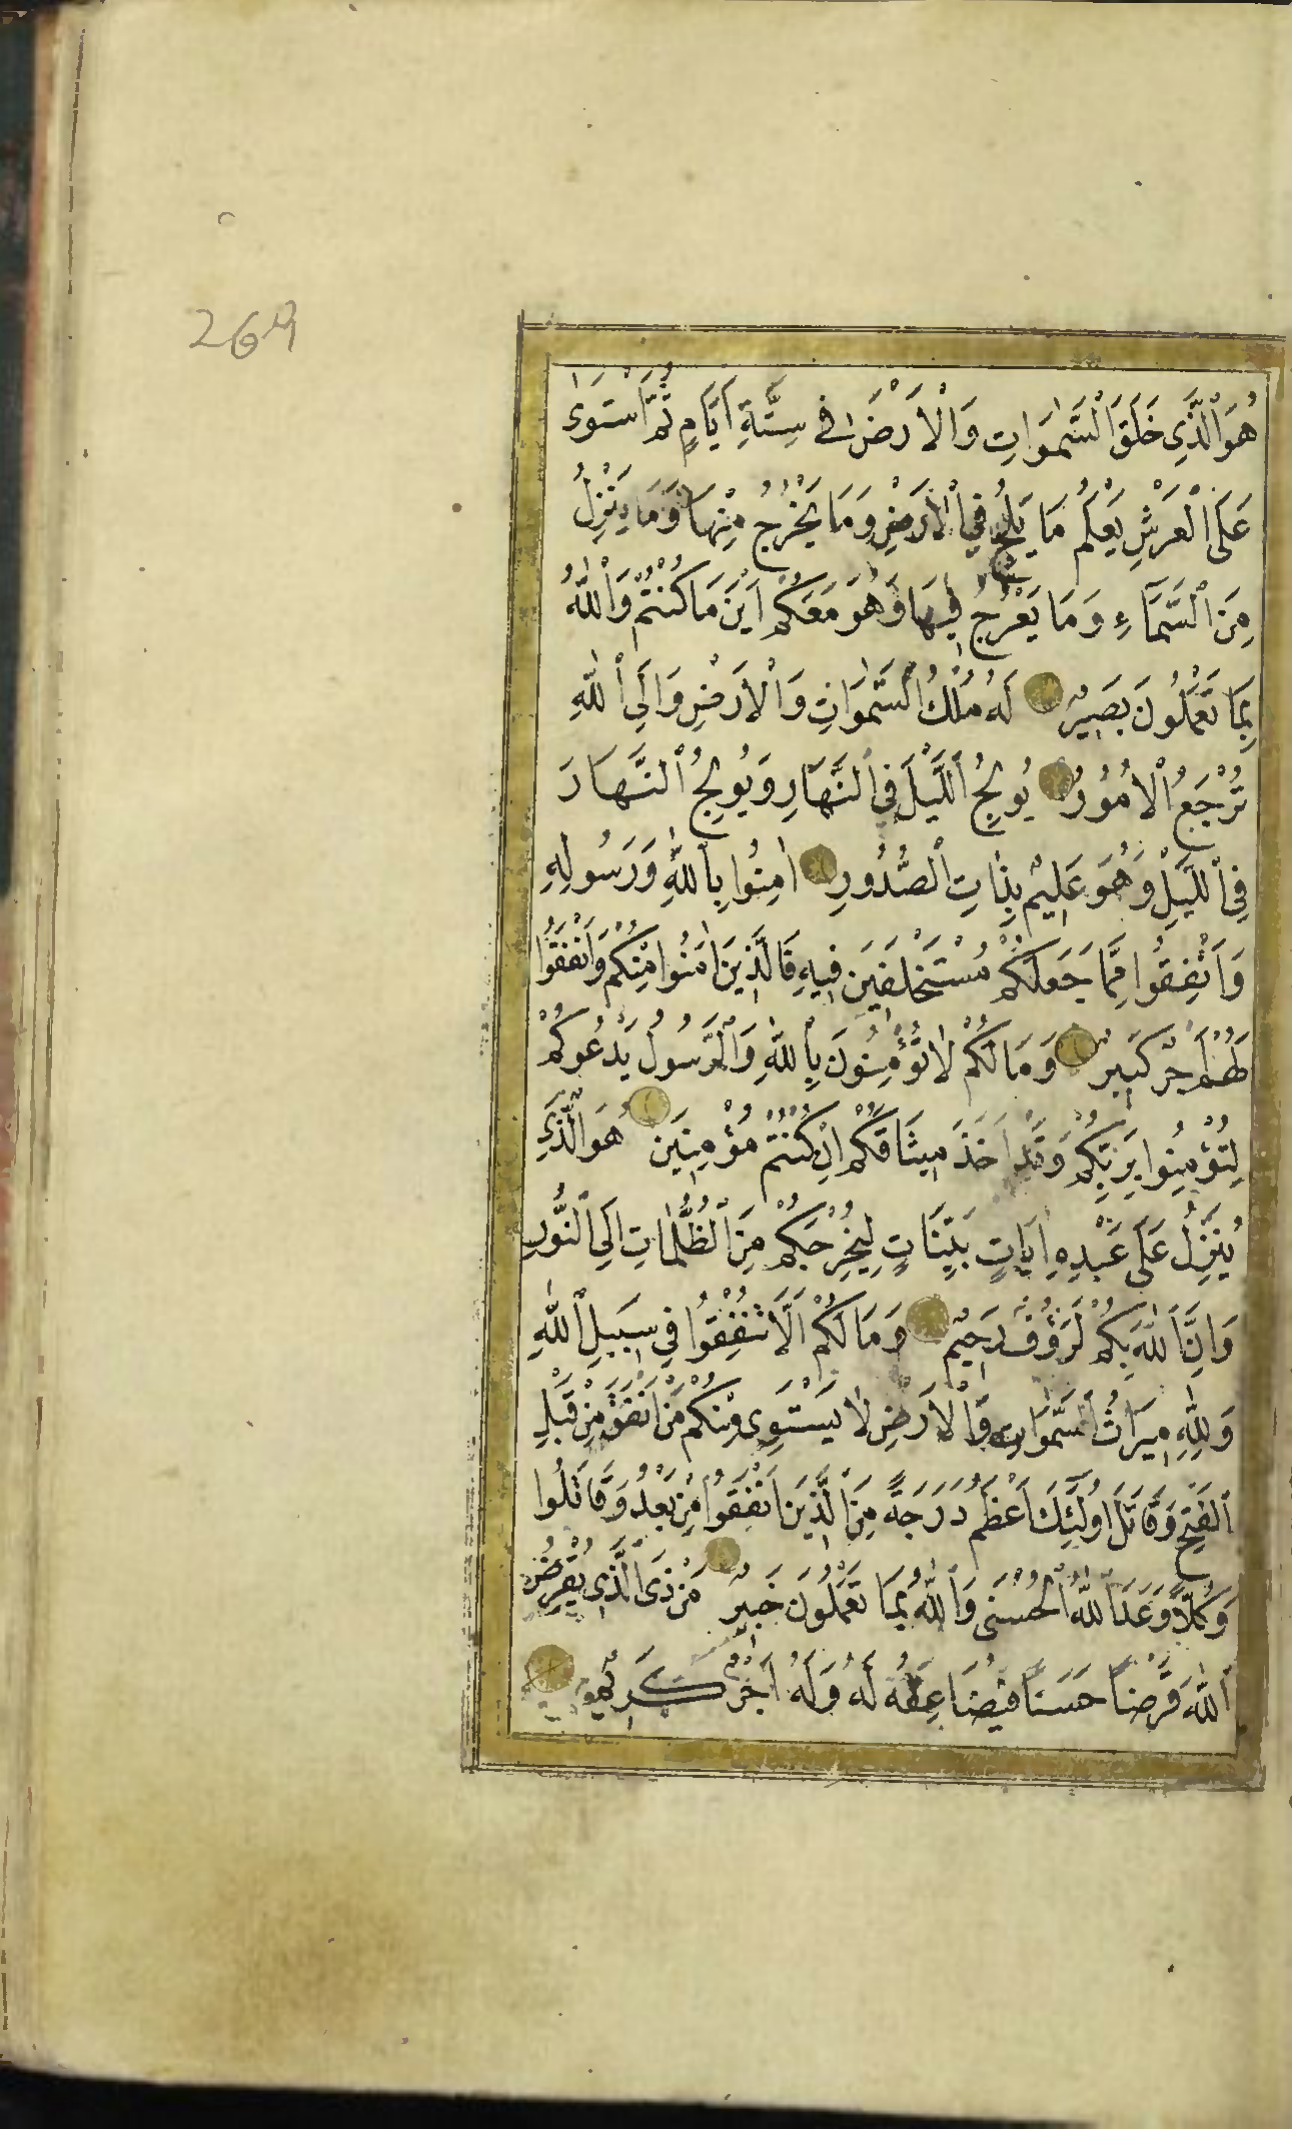 264
هُوَ ٱلَّذِي خَلَقَ ٱلسَّمٰوَاتِ وَٱلْأَرْضَ فِي سِتَّةِ أَيَّامٍ ثُمَّ ٱسْتَوٰى
عَلَى ٱلْعَرْشِ يَعْلَمُ مَا يَلِجُ فِي ٱلْأَرْضِ وَمَا يَخْرُجُ مِنْهَا وَمَا يَنْزِلُ
مِنَ ٱلسَّمَآءِ وَمَا يَعْرُجُ فِيهَا وَهُوَ مَعَكُمْ اَيْنَ مَا كُنْتُمْ وَٱللّٰهُ
بِمَا تَعْمَلُونَ بَصِيرٌ لَهُ مُلْكُ ٱلسَّمٰوَاتِ وَٱلْأَرْضِ وَاِلَى ٱللّٰهِ
تُرْجَعُ ٱلْاُمُورُ يُولِجُ ٱللَّيْلَ فِي ٱلنَّهَارِ وَيُولِجُ ٱلنَّهَارَ
فِي ٱللَّيْلِ وَهُوَ عَلِيمٌ بِذَاتِ ٱلصُّدُورِ اٰمِنُوا بِٱللّٰهِ وَرَسُولِهِ
وَاَنْفِقُوا مِمَّا جَعَلَكُمْ مُسْتَخْلَفِينَ فِيهِ فَالَّذِينَ اٰمَنُوا مِنْكُمْ وَاَنْفَقُوا
لَهُمْ اَجْرٌ كَبِيرٌ وَمَا لَكُمْ لَا تُؤْمِنُونَ بِٱللّٰهِ وَٱلرَّسُولُ يَدْعُوكُمْ
لِتُؤْمِنُوا بِرَبِّكُمْ وَقَدْ اَخَذَ مِيثَاقَكُمْ اِنْ كُنْتُمْ مُؤْمِنِينَ هُوَ ٱلَّذِي
يُنَزِّلُ عَلَى عَبْدِهِ اٰيَاتٍ بَيِّنَاتٍ لِيُخْرِجَكُمْ مِنَ ٱلظُّلُمَاتِ اِلَى ٱلنُّورِ
وَاِنَّ ٱللّٰهَ بِكُمْ لَرَؤُفٌ رَحِيمٌ وَمَا لَكُمْ اَلَّا تُنْفِقُوا فِي سَبِيلِ ٱللّٰهِ
وَلِلّٰهِ مِيرَاثُ ٱلسَّمٰوَاتِ وَٱلْأَرْضِ لَا يَسْتَوِي مِنْكُمْ مَنْ اَنْفَقَ مِنْ قَبْلِ
ٱلْفَتْحِ وَقَاتَلَ اُولٰٓئِكَ اَعْظَمُ دَرَجَةً مِنَ ٱلَّذِينَ اَنْفَقُوا مِنْ بَعْدُ وَقَاتَلُوا
وَكُلًّا وَعَدَ ٱللّٰهُ ٱلْحُسْنَى وَٱللّٰهُ بِمَا تَعْمَلُونَ خَبِيرٌ مَنْ ذَا ٱلَّذِي يُقْرِضُ
ٱللّٰهَ قَرْضًا حَسَنًا فَيُضَاعِفَهُ لَهُ وَلَهُ اَجْرٌ كَرِيمٌ